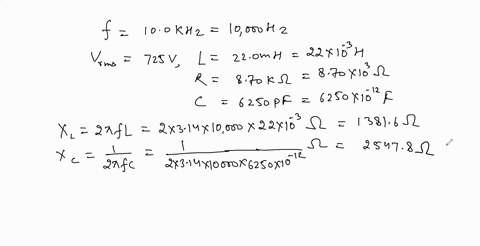 f = 10.0 KHz = 10,000 Hz
Vrms = 725 V, L = 22.0 mH = 22×10⁻³ H
R = 8.70 KΩ = 8.70×10³ Ω
C = 6250 PF = 6250×10⁻¹² F
X_L = 2πfL = 2×3.14×10,000×22×10⁻³ Ω = 1381.6 Ω
X_C = 1/2πfC = 1/2×3.14×10000×6250×10⁻¹² Ω = 2547.8 Ω